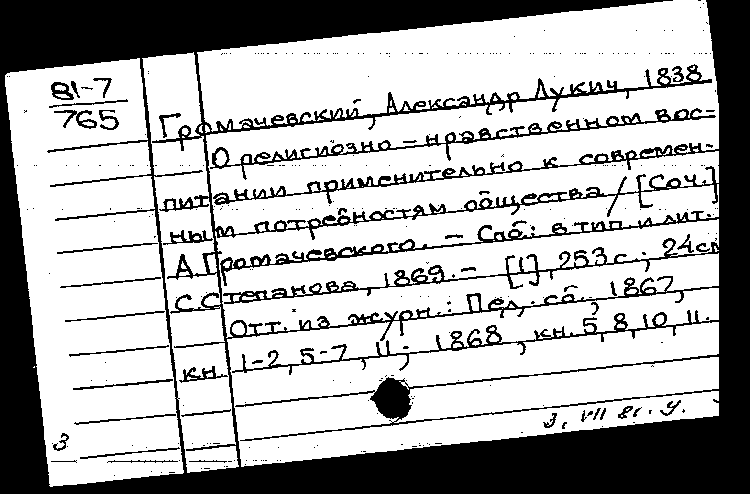 81-7
765
Громачевский, Александр Лукич, 1838
О религиозно-нравственном вос=
питании применительно к современ-
ным потребностям общества / [Соч.]
А. Громачевского. - Спб.: в тип. и лит.
С. Степанова, 1869. - [1], 253 с.; 24 см
Отт. из журн.: Пед. сб., 1867,
кн. 1-2, 5-7, 11; 1868, кн. 5, 8, 10, 11.
3
3. VII 81. У.